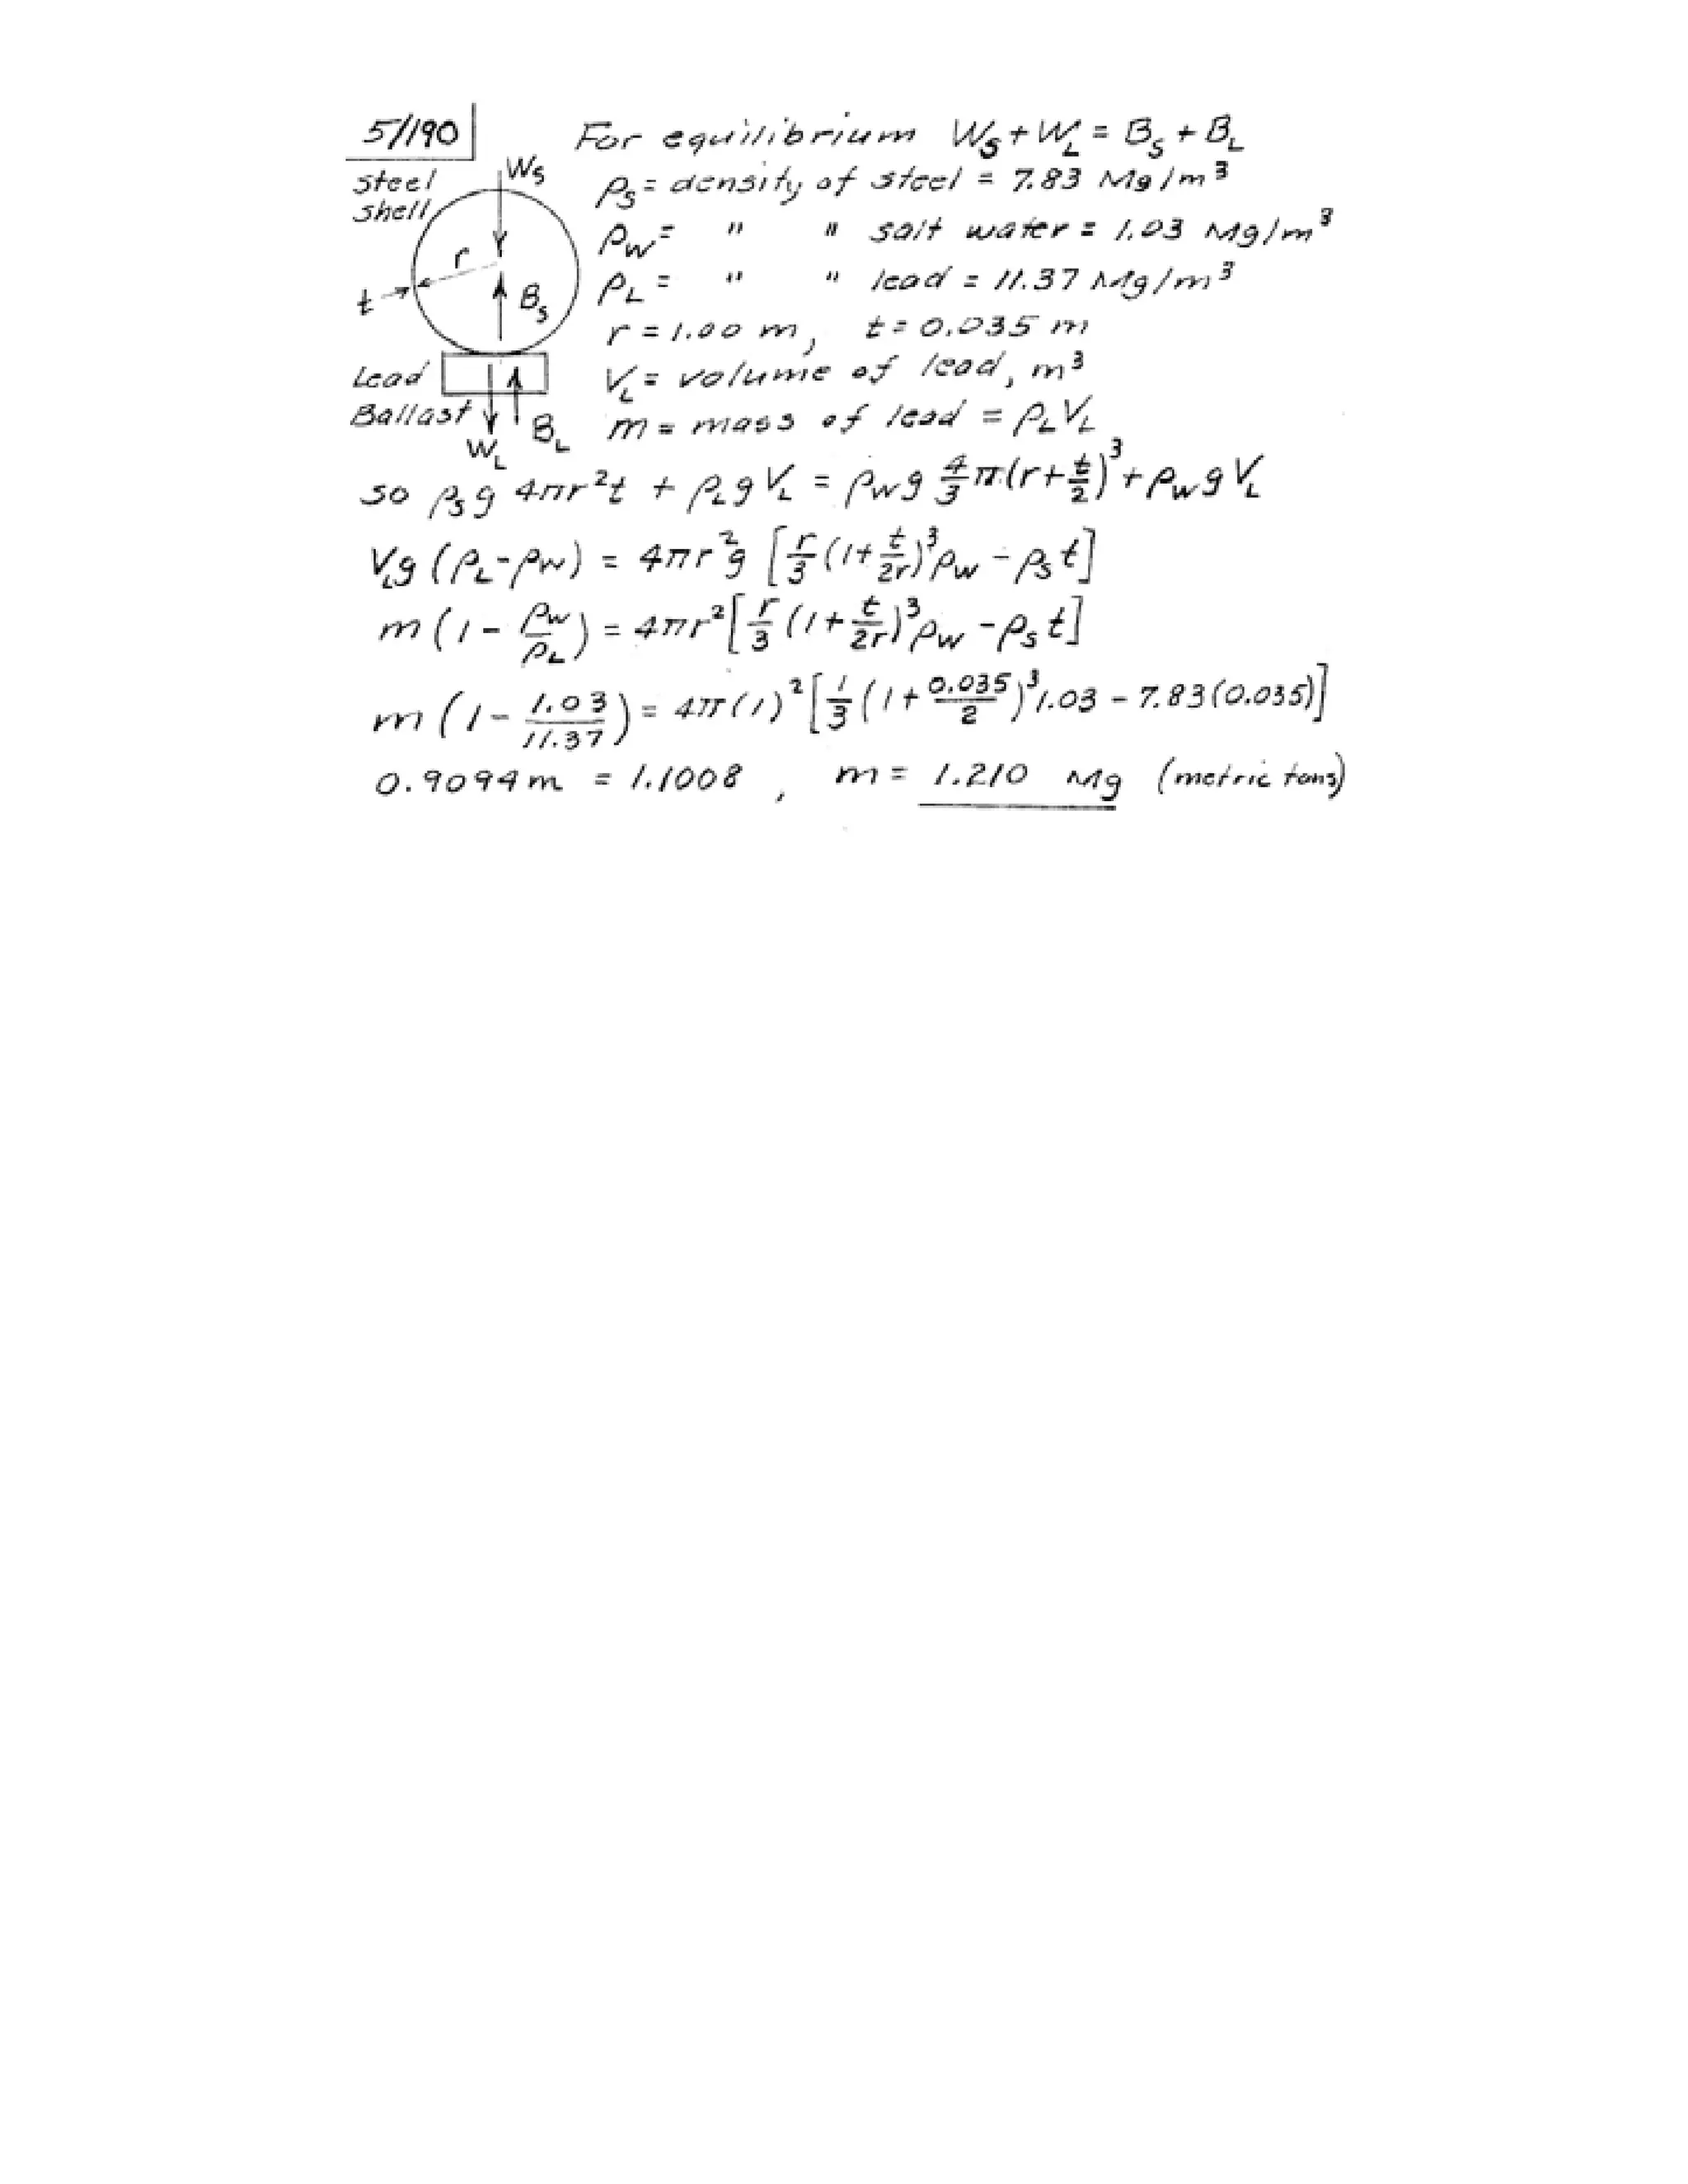 5/190
For equilibrium W_S + W_L = B_S + B_L
Steel shell
W_S
r
t
B_S
Lead Ballast
W_L
B_L
ρ_S = density of steel = 7.83 Mg/m³
ρ_W = " " salt water = 1.03 Mg/m³
ρ_L = " " lead = 11.37 Mg/m³
r = 1.00 m, t = 0.035 m
V_L = volume of lead, m³
m = mass of lead = ρ_L V_L
so ρ_S g 4πr²t + ρ_L g V_L = ρ_W g 4/3 π(r + t/2)³ + ρ_W g V_L
V_L g (ρ_L - ρ_W) = 4πr²g [r/3 (1 + t/2r)³ ρ_W - ρ_S t]
m (1 - ρ_W/ρ_L) = 4πr² [r/3 (1 + t/2r)³ ρ_W - ρ_S t]
m (1 - 1.03/11.37) = 4π(1)² [1/3 (1 + 0.035/2)³ 1.03 - 7.83(0.035)]
0.9094 m = 1.1008, m = 1.210 Mg (metric tons)